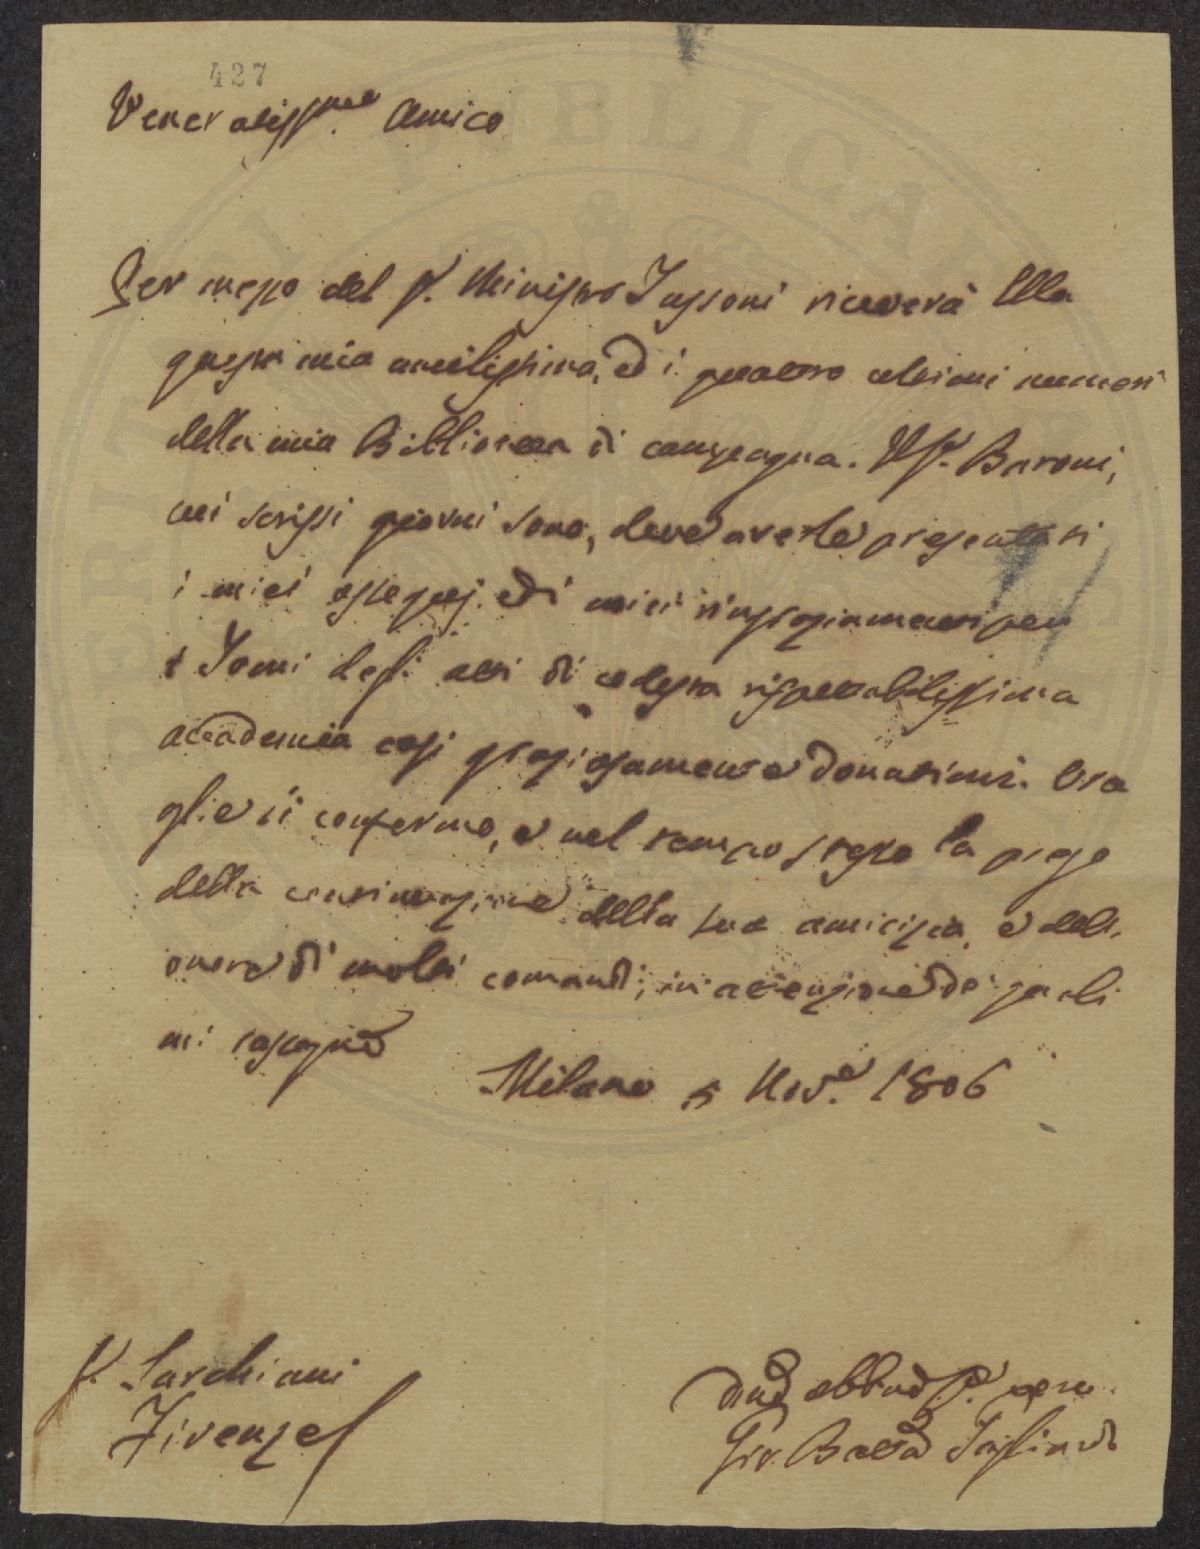 427
Veneratiss.mo Amico
Per mezzo del S.r Ministro Tassoni riceverà Ella
questa mia umilissima, ed i quattro ultimi numeri
della mia Biblioteca di campagna. Il S.r Baroni,
cui scrissi giorni sono, deve averle presentati
i miei ossequj, ed i miei ringraziamenti per
i Tomi degli atti di codesta rispettabilissima
accademia così graziosamente donatimi. Ora
glie li confermo, e nel tempo stesso la prego
della continuazione della sua amicizia, e dell'
onore di molti comandi, in attenzione de' quali
mi rassegno
Milano 5 Nov.e 1806
S.r Sarchiani
Firenze
Gio. Batta Gagliardo
PERITATI PUBLICAE